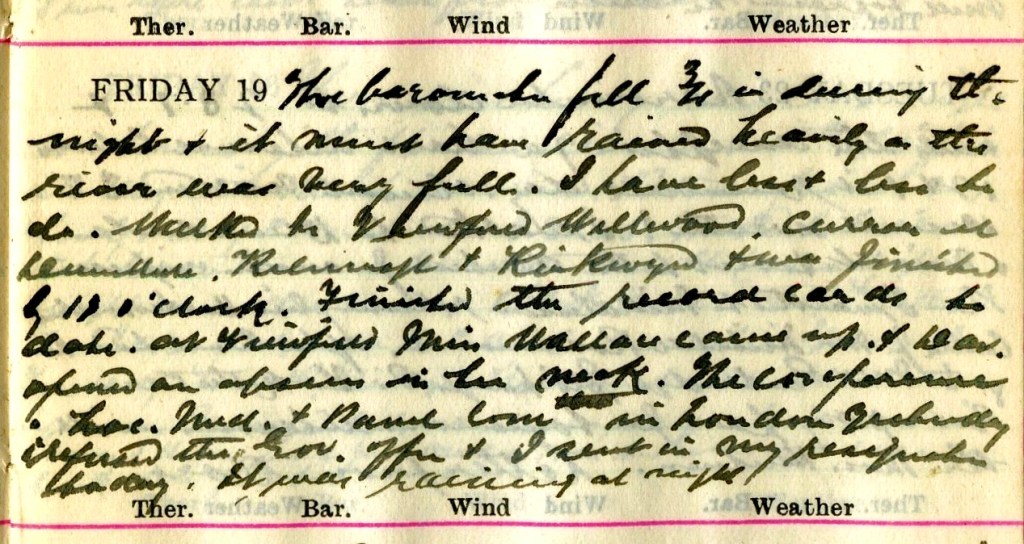 Ther. Bar. Wind Weather
FRIDAY 19 The barometer fell 3/4 in during the
night & it must have rained heavily as the
river was very full. I have less & less to
do. Walked to Wellwood,
& & was finished
by 12 o'clock. Finished the record cards to
date. at Miss Wallace came up. &
opened an abscess in her neck. The conference
Loc. Med. & Panel Com in London yesterday
refused the Gov. offer & I sent in my resignation
today. It was raining at night
Ther. Bar. Wind Weather